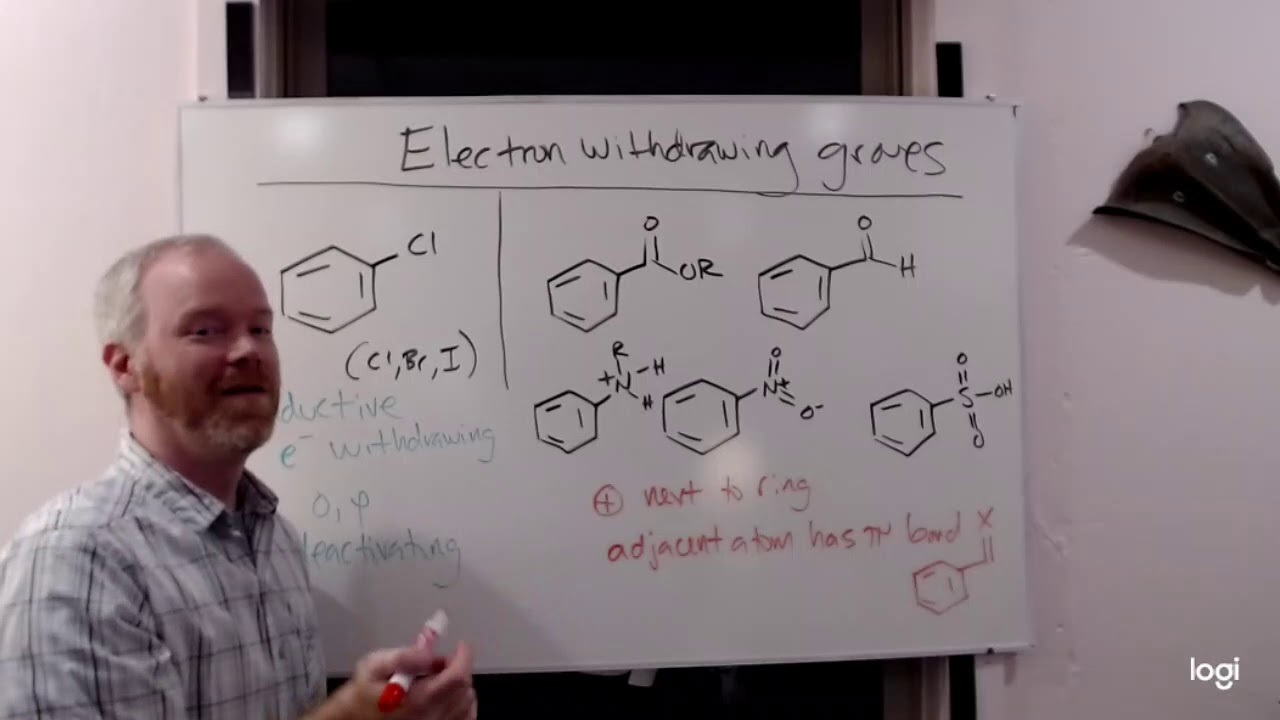 Electron withdrawing groves
Cl
(Cl, Br, I)
ductive
e⁻ withdrawing
o, p
deactivating
O
OR
O
H
R
+
N
H
H
O
N+
O⁻
O
S
OH
O
⊕ next to ring
adjacent atom has π bond
X
logi